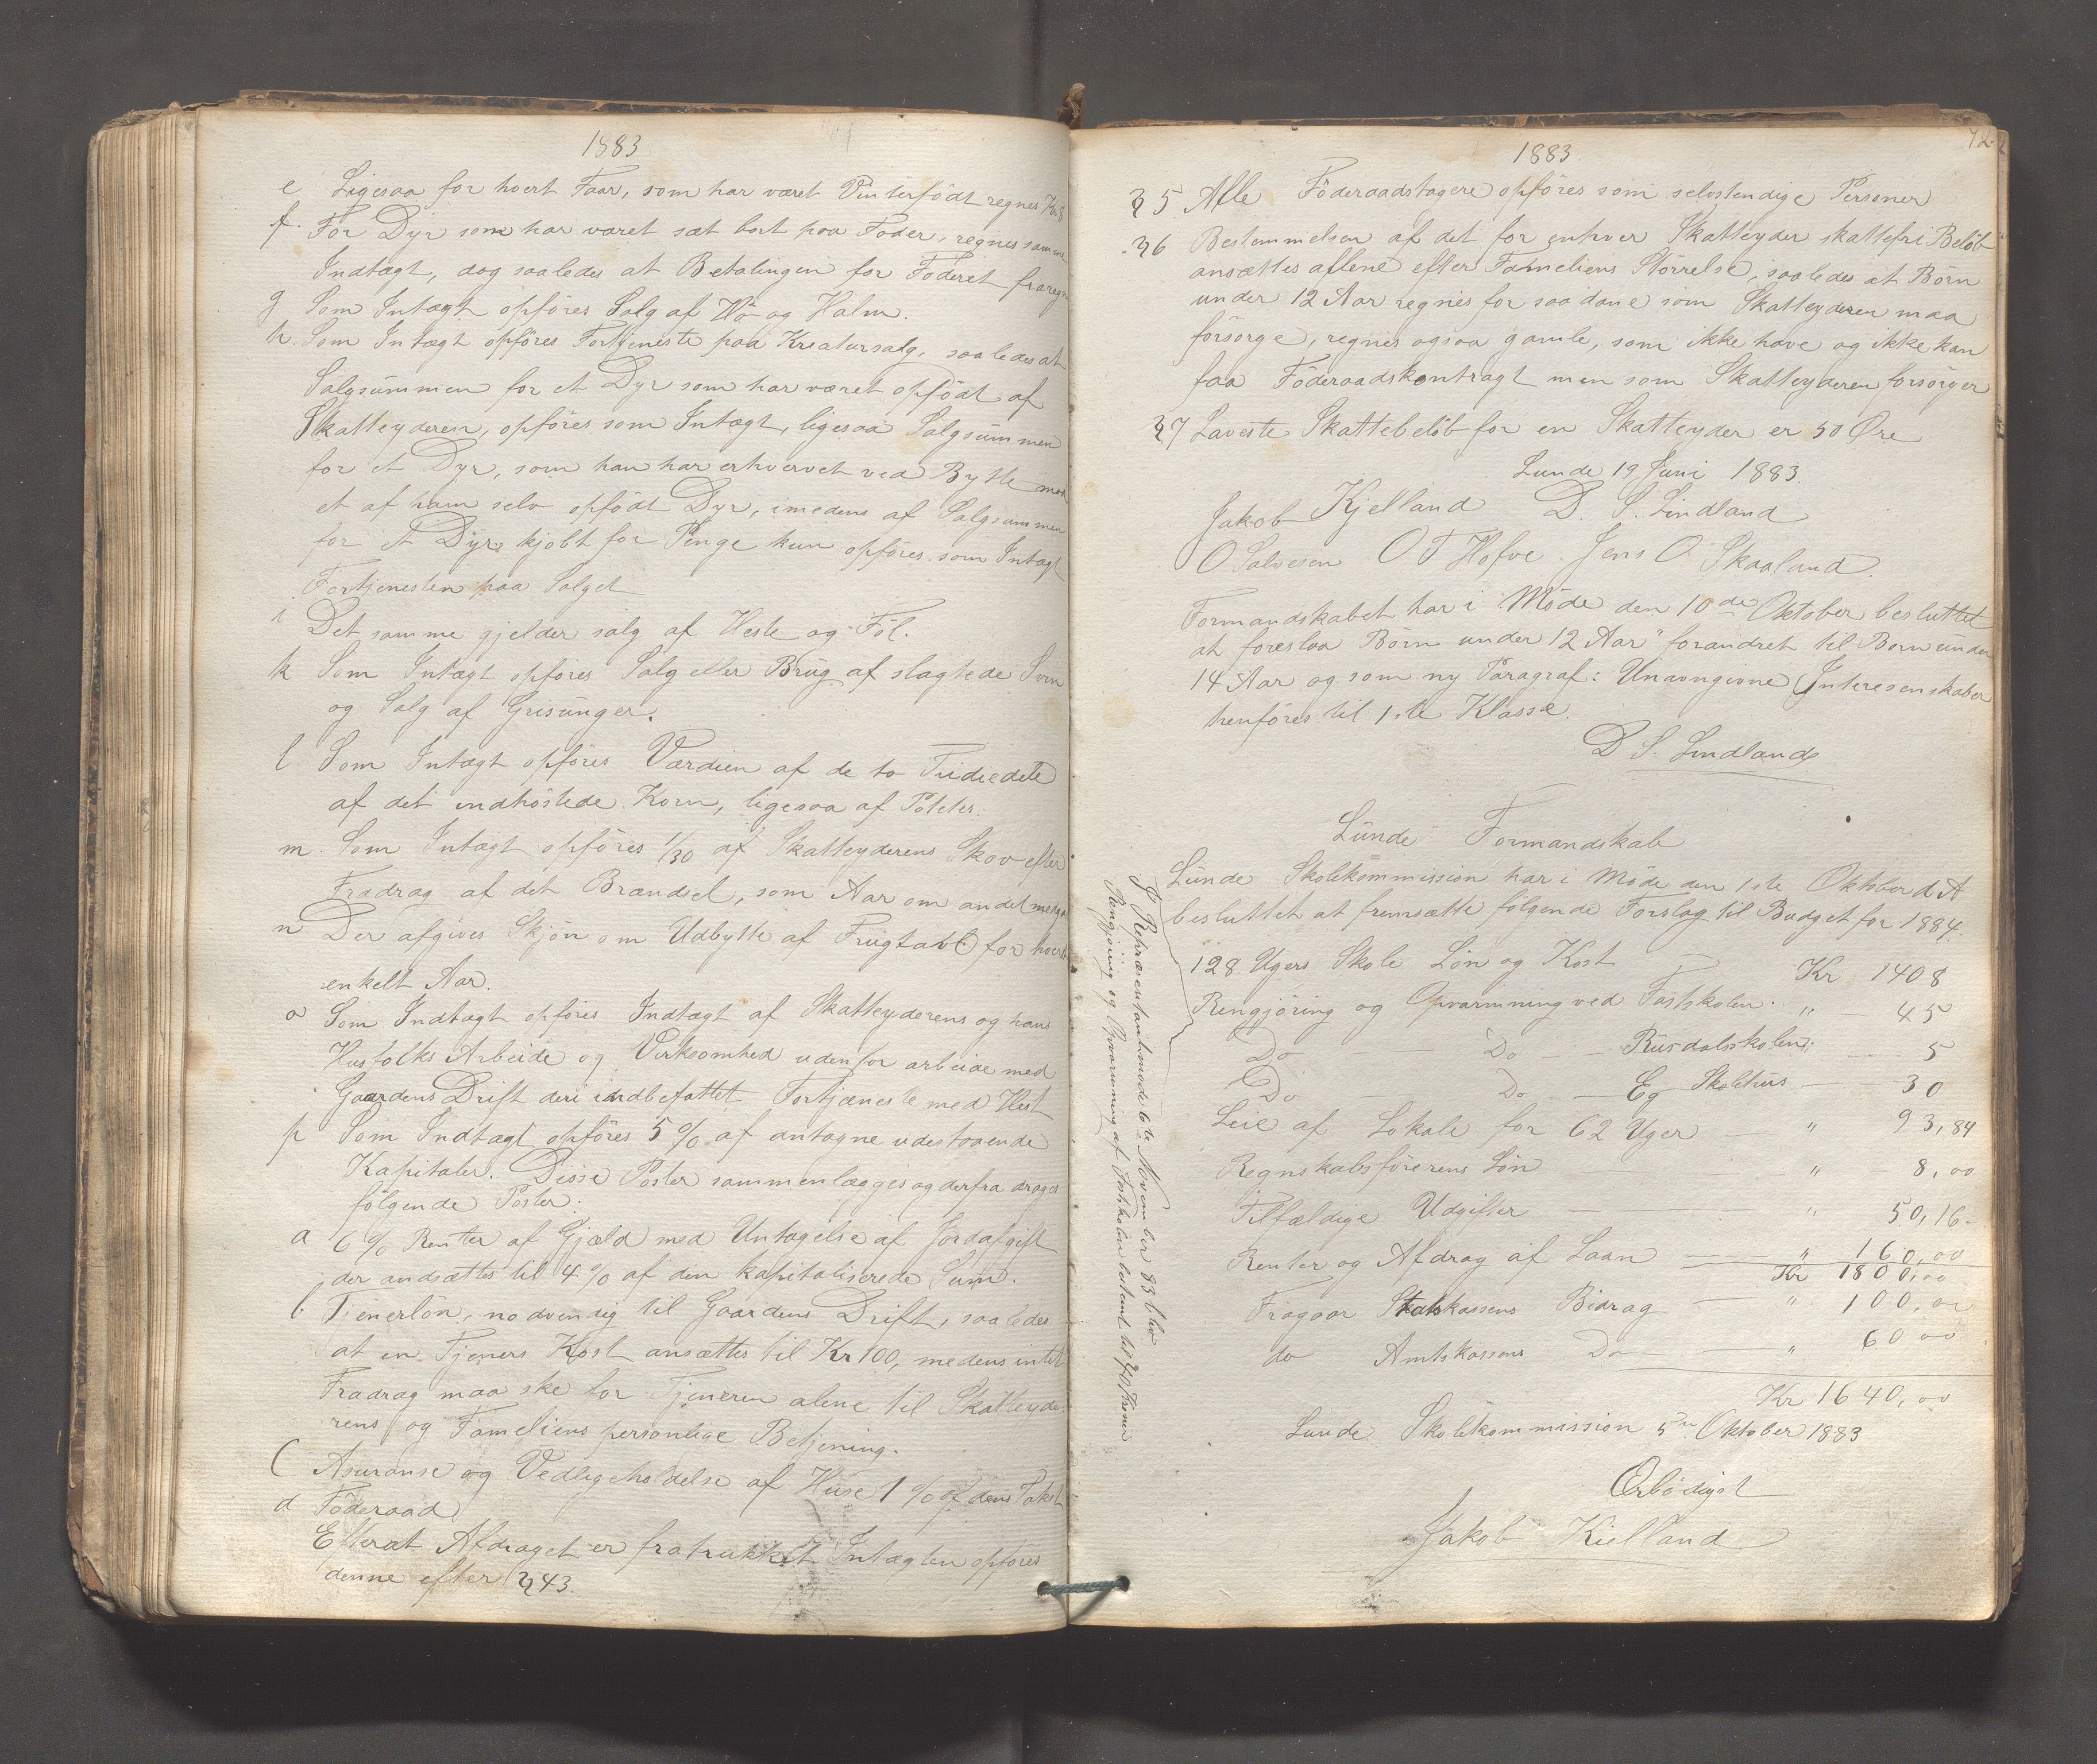 1883
e Ligesaa for hvert Faar, som har været Vinterfödt regnes Kr 3
f. For Dyr som har været sat bort paa Foder, regnes samme
Indtægt, dog saaledes at Betalingen for Föderet fraregn
g Som Intægt opföres Salg af Hö og Halm.
h. Som Intægt opföres Fortjeneste paa Kreatursalg, saaledes at
Salgsummen for et Dyr som har været opfödt af
Skatteyderen, opföres som Intægt, ligesaa Salgsummen
for et Dyr, som han har erhvervet ved Bytte mod
et af ham selv opfödt Dyr, imedens af Salgsummen
for et Dyr kjöbt for Penge kun opföres som Intægt
Fortjenesten paa Salget
i Det samme gjelder salg af Heste og Föl.
k Som Intægt opföres Salg eller Brug af slagtede Svin
og Salg af Grisunger.
l Som Intægt opföres Værdien af de to Tridiedele
af det indhöstede Korn, ligesaa af Poteter.
m. Som Intægt opföres 1/30 af Skatteyderens Skov efter
Fradrag af det Brændsel, som Aar om andet medgaa
n Der afgives Skjön om Udbytte af Frugtavl for hvert
enkelt Aar.
o Som Indtægt opföres Indtægt af Skatteyderens og hans
Husfolks Arbeide og Virksomhed udenfor arbeide med
Gaardens Drift deri indbefattet Fortjæneste med Hest
p Som Indtægt opföres 5 % af antagne udestaaende
Kapitaler. Disse Poster sammenlægges og derfra drages
fölgende Poster:
a 6 % Renter af Gjæld med Untagelse af Jordafgift
der andsættes til 4 % af den kapitaliserede Sum.
b Tienerlön, nodvendig til Gaardens Drift, saaledes
at en Tjeners Kost ansættes til Kr 100, medens intet
Fradrag maa ske for Tjeneren alene til Skatteyde
rens og Fameliens personlige Betjening.
C Asuranse og Vedligeholdelse af Huse 1 % af dens Takst
d Föderaad
Efterat Afdraget er fratrukket Intægten opföres
denne efter § 43.
72
1883
§ 5 Alle Föderaadstagere opföres som selvstendige Personer
§ 6 Bestemmelsen af det for enhver Skatteyder skattefri Belöb
ansættes allene efter Fameliens Störrelse, saaledes at Börn
under 12 Aar regnes for saadane som Skatteyderen maa
forsörge, regnes ogsaa gamle, som ikke have og ikke kan
faa Föderaadskontragt men som Skatteyderen forsörger
§ 7 Laveste Skattebelöb for en Skatteyder er 50 Øre
Lunde 19 Juni 1883.
Jakob Kjelland D. S. Lindland
O Salvesen O T Hofve Jens O Skaaland.
Formandskabet har i Möde den 10de Oktober besluttet
at foreslaa Börn under 12 Aar" forandret til Born under
14 Aar og som ny Paragraf: Unavngivne Interesenskaber
henföres til 1ste Klasse.
D S. Lindland
Lunde Formandskab
Lunde Skolekommission har i Möde den 1ste Oktober d A
besluttet at fremsætte fölgende Forslag til Budget for 1884.
128 Ugers Skole Lön og Kost Kr 1408
Rengjöring og Opvarmning ved Fastskolen. " 45
Do Do Rusdalsskolen. 5
Do Do Eg Skolehus 30
Leie af Lokale for 62 Uger " 93,84
Regnskabsförerens Lön " 8,00
Tilfældige Udgifter " 50,16
Renter og Afdrag af Laan " 160,00
Kr 1800,00
Fragaar Statskassens Bidrag " 100,00
do Amtskassens Do " 60 00
Kr 1640,00
Lunde Skolekommission 5te Oktober 1883
Ærbödigst
Jakob Kielland
I Repræsentantmöde 6te November 83 blev
Rengjöring og Opvarmning af Fastskolen bestemt til 40 Kroner